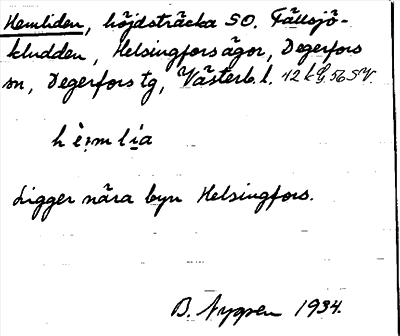 Hemliden, höjdsträcka SO. Fällsjö-
kludden, Helsingfors ägor, Degerfors
sn, Degerfors tg, Västerb. l. 12 k G. 56 SV.
h è m l ı̣ a
Ligger nära byn Helsingfors.
B. Nygren 1934.